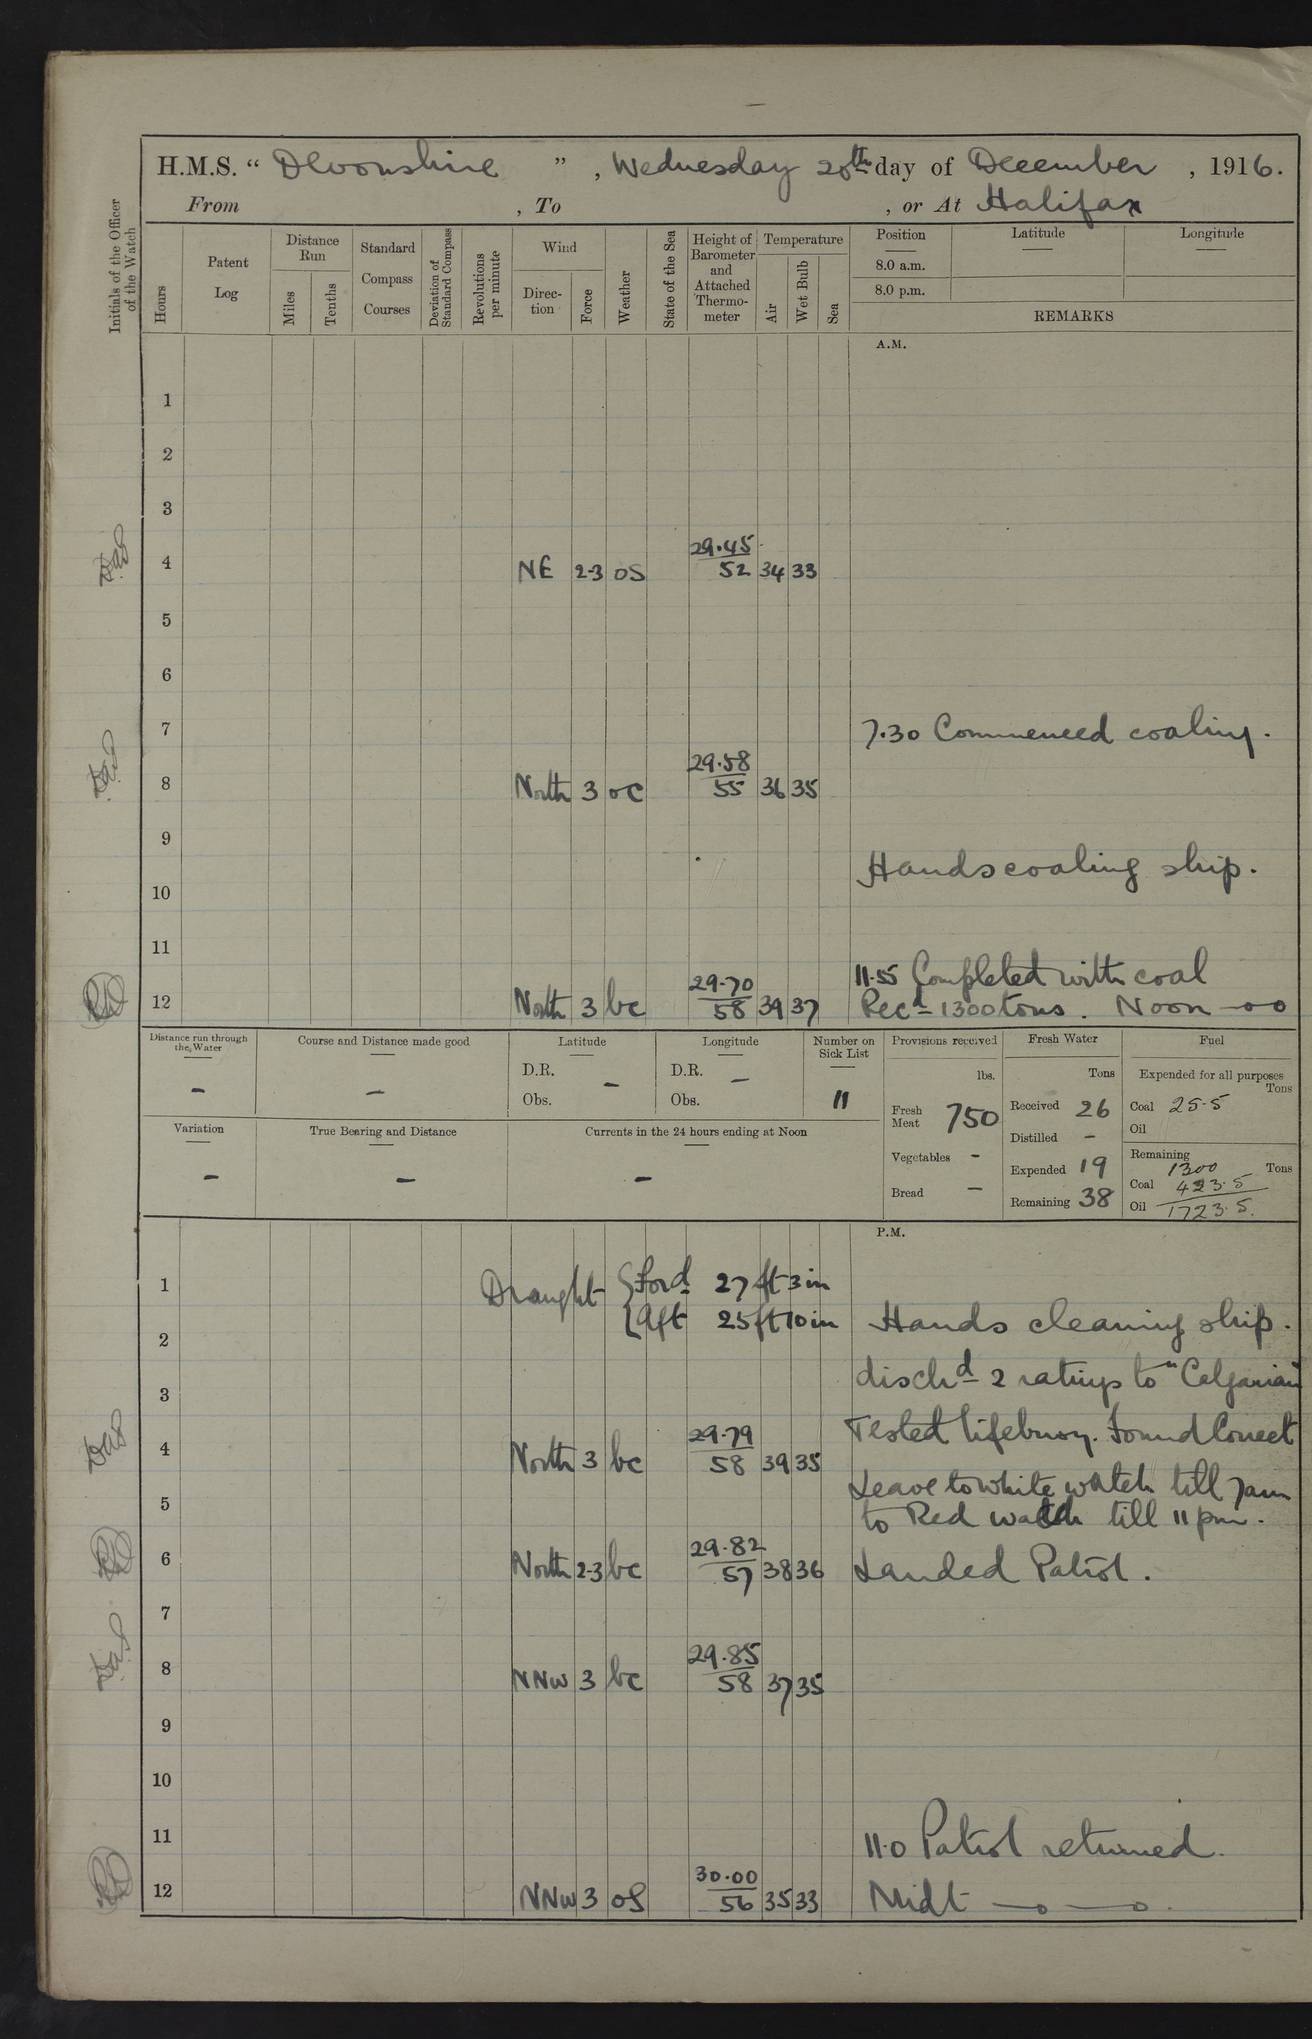 H.M.S. “ Devonshire ”, Wednesday 20th day of December, 1916.
From , To , or At Halifax
Initials of the Officer of the Watch
Hours
Patent Log
Distance Run
Miles
Tenths
Standard Compass Courses
Deviation of Standard Compass
Revolutions per minute
Wind
Direction
Force
Weather
State of the Sea
Height of Barometer and Attached Thermometer
Temperature
Air
Wet Bulb
Sea
Position
8.0 a.m.
8.0 p.m.
Latitude
Longitude
REMARKS
A.M.
1
2
3
4 NE 2-3 os 29.45 52 34 33
5
6
7 7.30 Commenced coaling.
8 North 3 oc 29.58 55 36 35
9
Hands coaling ship.
10
11
11.55 Completed with coal
12 North 3 bc 29.70 58 39 37 Recd 1300 tons. Noon —oo
Distance run through the Water
-
Course and Distance made good
-
Latitude
D.R. -
Obs.
Longitude
D.R. -
Obs.
Number on Sick List
11
Provisions received
lbs.
Fresh Meat 750
Vegetables -
Bread -
Fresh Water
Tons
Received 26
Distilled -
Expended 19
Remaining 38
Fuel
Expended for all purposes
Tons
Coal 25.5
Oil
Remaining
1300 Tons
Coal 423.5
Oil 1723.5.
Variation
-
True Bearing and Distance
-
Currents in the 24 hours ending at Noon
-
P.M.
1 Draught { Ford 27 ft 3 in
Aft 25 ft 10 in Hands cleaning ship.
2
dischd 2 ratings to "Calgarian"
3
Tested lifebuoy. Found Correct
4 North 3 bc 29.79 58 39 35
Leave to white watch till 7am
5 to Red watch till 11 pm.
6 North 2-3 bc 29.82 57 38 36 Landed Patrol.
7
8 NNW 3 bc 29.85 58 37 35
9
10
11 11.0 Patrol returned.
12 NNW 3 os 30.00 56 35 33 Midt —o —o.